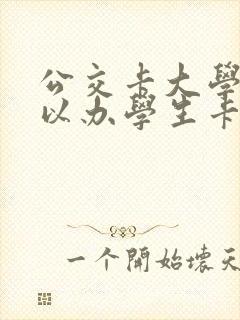 公交卡大學
以办學生卡
一个開始壞天